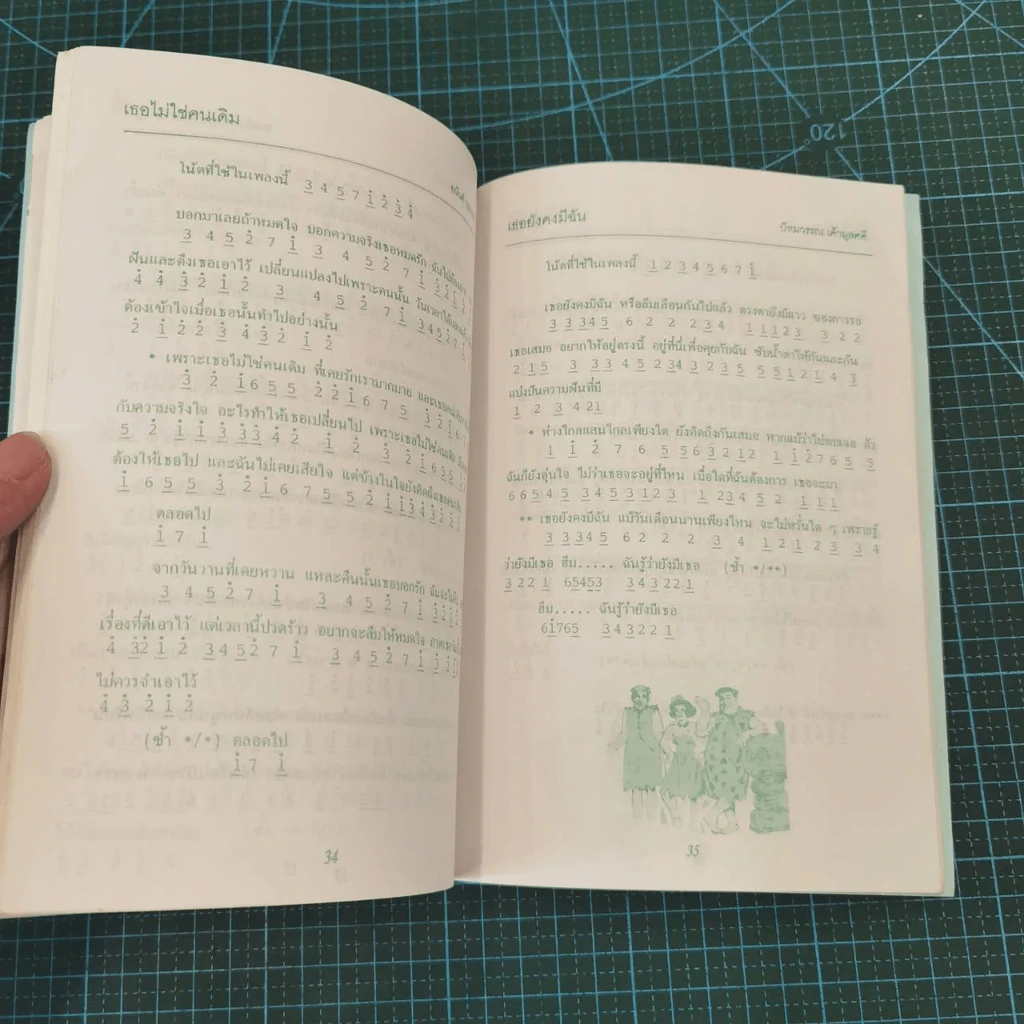 เธอไม่ใช่คนเดิม
โน้ตที่ใช้ในเพลงนี้ 3̲ 4 5̲ 7 i̲ 2̇ 3̲̇ 4̇
บอกมาเลยถ้าหมดใจ บอกความจริงเธอหมดรัก
3̲ 4 5̲ 2̇ 7 i̲ 3̲ 4 5̲ 2̇ 7 i̲ 3̲̇ 2̇ i̲ 2̇
ฝืนและดึงเธอเอาไว้ เปลี่ยนแปลงไปเพราะคนนั้น วันเวลา
4̇ 4̇ 3̲̇ 2̇ i̲ 2̇ 3̲ 4 5̲ 2̇ 7 i̲ 3 4 5̲ 2̇ 7 i̲
ต้องเข้าใจเมื่อเธอนั้นทำไปอย่างนั้น
2̇ i̲ 2̇ 2̇ 3̲̇ 4̇ 3̲̇ 2̇ i̲ 2̇
* เพราะเธอไม่ใช่คนเดิม ที่เคยรักเรามากมาย และเธอ
3̲̇ 2̇ i̲ 6 5̲ 5̲ 2̇ 2̇ i̲ 6 7 5̲ 3̲̇ 2̇ i̲ 6
กับความจริงใจ อะไรทำให้เธอเปลี่ยนไป เพราะเธอไม่ใช่คนเดิม
5̲ 2̇ i̲ i̲ 3̲̇ 3̲̇ 3̲̇ 4̇ 2̇ i̲ 2̇ 3̲̇ 2̇ i̲ 6 5̲ 5̲
ต้องให้เธอไป และฉันไม่เคยเสียใจ แต่ข้างในใจยังคิดถึงเธอ
i̲ 6 5̲ 5̲ 3̲̇ 2̇ i̲ 6 7 5̲ 5̲ 2̇ i̲ i̲ 3̲̇ 4̇ 3̲̇ 2̇ 2̇
ตลอดไป
i̲ 7 i̲
จากวันวานที่เคยหวาน และคืนนั้นเธอบอกรัก
3̲ 4 5̲ 2̇ 7 i̲ 3̲ 4 5̲ 2̇ 7 i̲ 3̲̇ 2̇ i̲
เรื่องที่ดีเอาไว้ แต่เวลานี้ปวดร้าว อยากจะลืมให้หมดใจ
4̇ 3̲̇2̇ i̲ 2̇ 3̲ 4 5̲ 2̇ 7 i̲ 3̲ 4 5̲ 2̇ 7 i̲ 3̲̇ 2̇ i̲
ไม่ควรจำเอาไว้
4̇ 3̲̇ 2̇ i̲ 2̇
(ซ้ำ */*) ตลอดไป
i̲ 7 i̲
34
เธอยังคงมีฉัน
ปัทมวรรณ เค้ามูลคดี
โน้ตที่ใช้ในเพลงนี้ 1̲ 2 3̲ 4 5̲ 6 7 i̲
เธอยังคงมีฉัน หรือลืมเลือนกันไปแล้ว ดวงตายังมีแวว ของการรอ
3̲ 3̲ 3̲ 4 5̲ 6 2 2 2 3̲ 4 1̲ 1̲ 1̲ 2 3̲ 3̲ 2 2
เธอเสมอ อยากให้อยู่ตรงนี้ อยู่ที่นี่เพื่อคุยกับฉัน ซับน้ำตาให้กันและกัน
2 1̲ 5̲ 3̲ 3̲ 3̲ 4 5̲ 2 3̲4 3̲ 2 3̲ 5̲ 5̲ 5̲ 1̲ 2 1̲ 4 3̲
แบ่งปันความฝันที่มี
1̲ 2 3̲ 4 2 1̲
* ห่างไกลแสนไกลเพียงใด ยังคิดถึงกันเสมอ หากแม้ว่าไม่พบเจอ ตัว
1̲ i̲ 2̇ 7 6 5̲ 5̲ 5̲ 6 3̲ 2 1̲ 2 1̲ i̲ 2̇ 7 6 5̲ 5̲
ฉันก็ยังอุ่นใจ ไม่ว่าเธอจะอยู่ที่ไหน เมื่อใดที่ฉันต้องการ เธอจะมา
6 6 5̲ 4 5̲ 3̲ 4 5̲ 3̲ 1̲ 2 3̲ 1̲ 2 3̲ 4 5̲ 2 1̲ 1̲ 1̲
** เธอยังคงมีฉัน แม้วันเดือนนานเพียงไหน จะไม่หวั่นใด ๆ เพราะรู้
3̲ 3̲ 3̲ 4 5̲ 6 2 2 2 3̲ 4 1̲ 2 1̲ 2 3̲ 3̲ 4
ว่ายังมีเธอ ฮืม..... ฉันรู้ว่ายังมีเธอ (ซ้ำ */**)
3̲ 2 2 1̲ 6 5̲ 4 5̲ 3̲ 3̲ 4 3̲ 2 2 1̲
ฮืม..... ฉันรู้ว่ายังมีเธอ
6 i̲ 7 6 5̲ 3̲ 4 3̲ 2 2 1̲
35
120